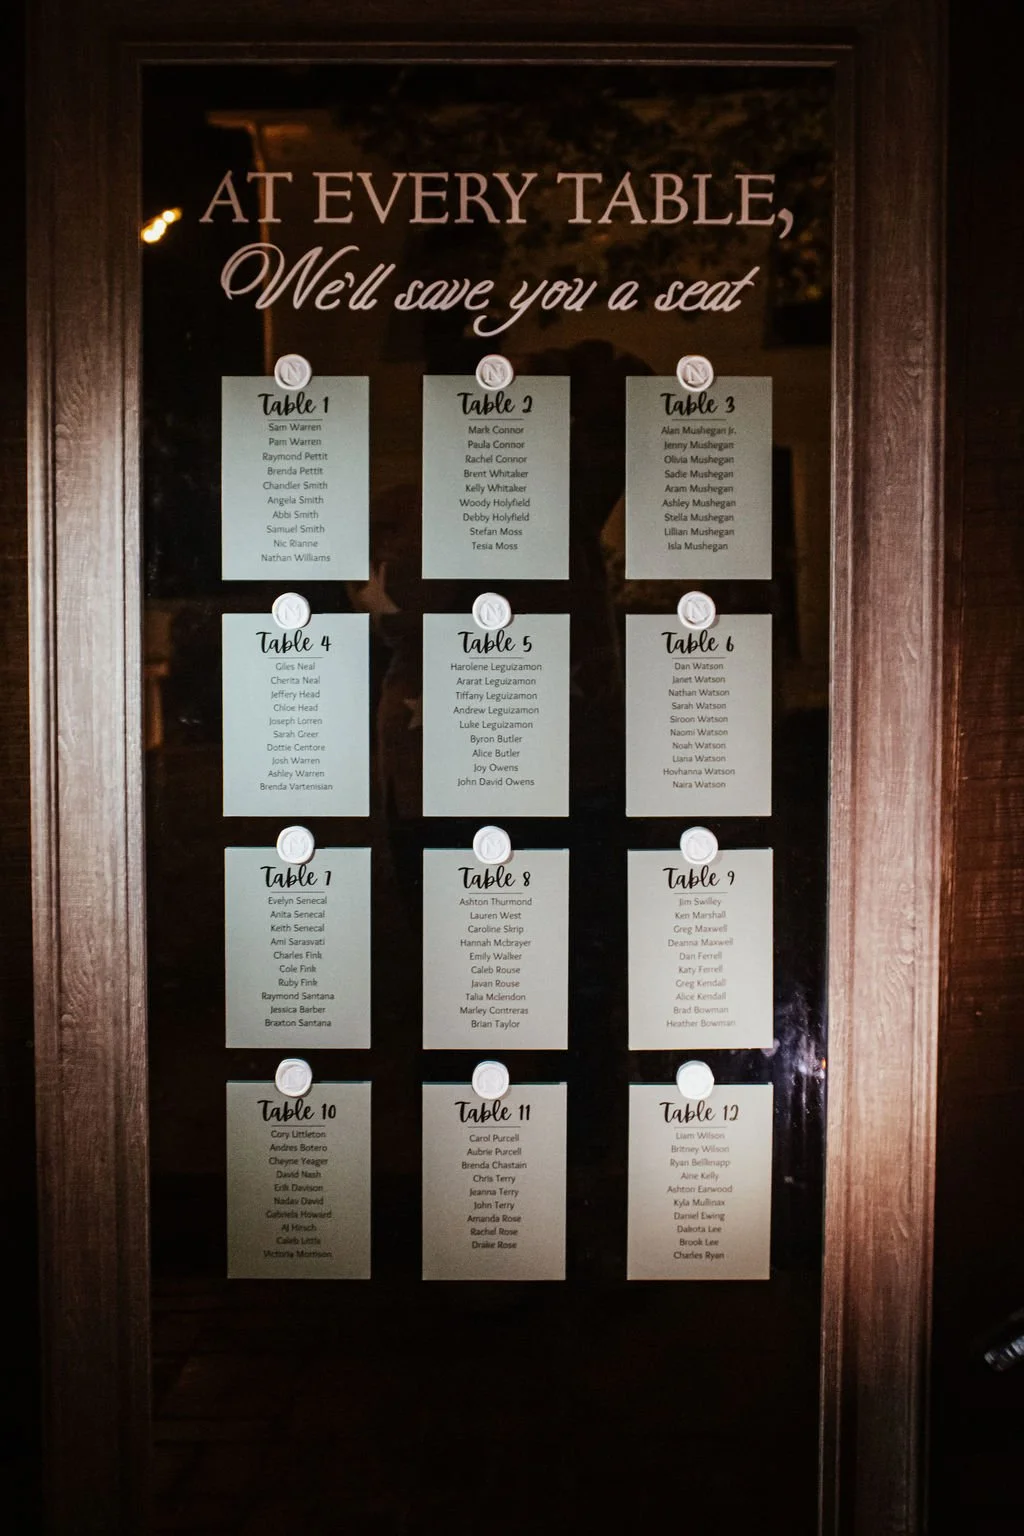 AT EVERY TABLE,
We'll save you a seat
Table 1
Sam Warren
Pam Warren
Raymond Pettit
Brenda Pettit
Chandler Smith
Angela Smith
Abbi Smith
Samuel Smith
Nic Rianne
Nathan Williams
Table 2
Mark Connor
Paula Connor
Rachel Connor
Brent Whitaker
Kelly Whitaker
Woody Holyfield
Debby Holyfield
Stefan Moss
Tesia Moss
Table 3
Alan Mushegan Jr.
Jenny Mushegan
Olivia Mushegan
Sadie Mushegan
Aram Mushegan
Ashley Mushegan
Stella Mushegan
Lillian Mushegan
Isla Mushegan
Table 4
Giles Neal
Cherita Neal
Jeffery Head
Chloe Head
Joseph Lorren
Sarah Greer
Dottie Centore
Josh Warren
Ashley Warren
Brenda Vartenisian
Table 5
Harolene Leguizamon
Ararat Leguizamon
Tiffany Leguizamon
Andrew Leguizamon
Luke Leguizamon
Byron Butler
Alice Butler
Joy Owens
John David Owens
Table 6
Dan Watson
Janet Watson
Nathan Watson
Sarah Watson
Siroon Watson
Naomi Watson
Noah Watson
Liana Watson
Hovhanna Watson
Naira Watson
Table 7
Evelyn Senecal
Anita Senecal
Keith Senecal
Ami Sarasvati
Charles Fink
Cole Fink
Ruby Fink
Raymond Santana
Jessica Barber
Braxton Santana
Table 8
Ashton Thurmond
Lauren West
Caroline Skrip
Hannah Mcbrayer
Emily Walker
Caleb Rouse
Javan Rouse
Talia Mclendon
Marley Contreras
Brian Taylor
Table 9
Jim Swilley
Ken Marshall
Greg Maxwell
Deanna Maxwell
Dan Ferrell
Katy Ferrell
Greg Kendall
Alice Kendall
Brad Bowman
Heather Bowman
Table 10
Cory Littleton
Andres Botero
Cheyne Yeager
David Nash
Erik Davison
Nadav David
Gabriela Howard
Al Hirsch
Caleb Little
Victoria Morrison
Table 11
Carol Purcell
Aubrie Purcell
Brenda Chastain
Chris Terry
Jeanna Terry
John Terry
Amanda Rose
Rachel Rose
Drake Rose
Table 12
Liam Wilson
Britney Wilson
Ryan Bellknapp
Aine Kelly
Ashton Earwood
Kyla Mullinax
Daniel Ewing
Dakota Lee
Brook Lee
Charles Ryan